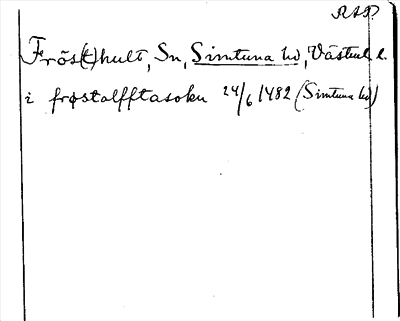 RAP.
Frös(t)hult, Sn, Simtuna hd, Västml l.
i frøstolfftasokn 24/6 1482 (Simtuna hd)